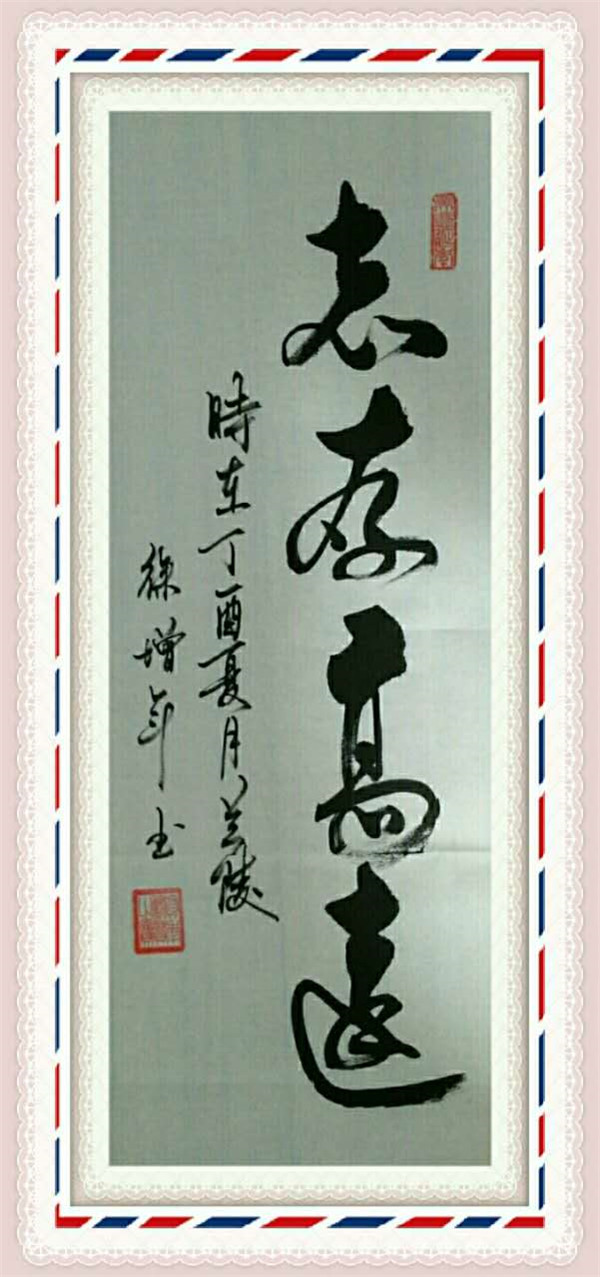 志存高遠
時在丁酉夏月蘭陵
徐增年书